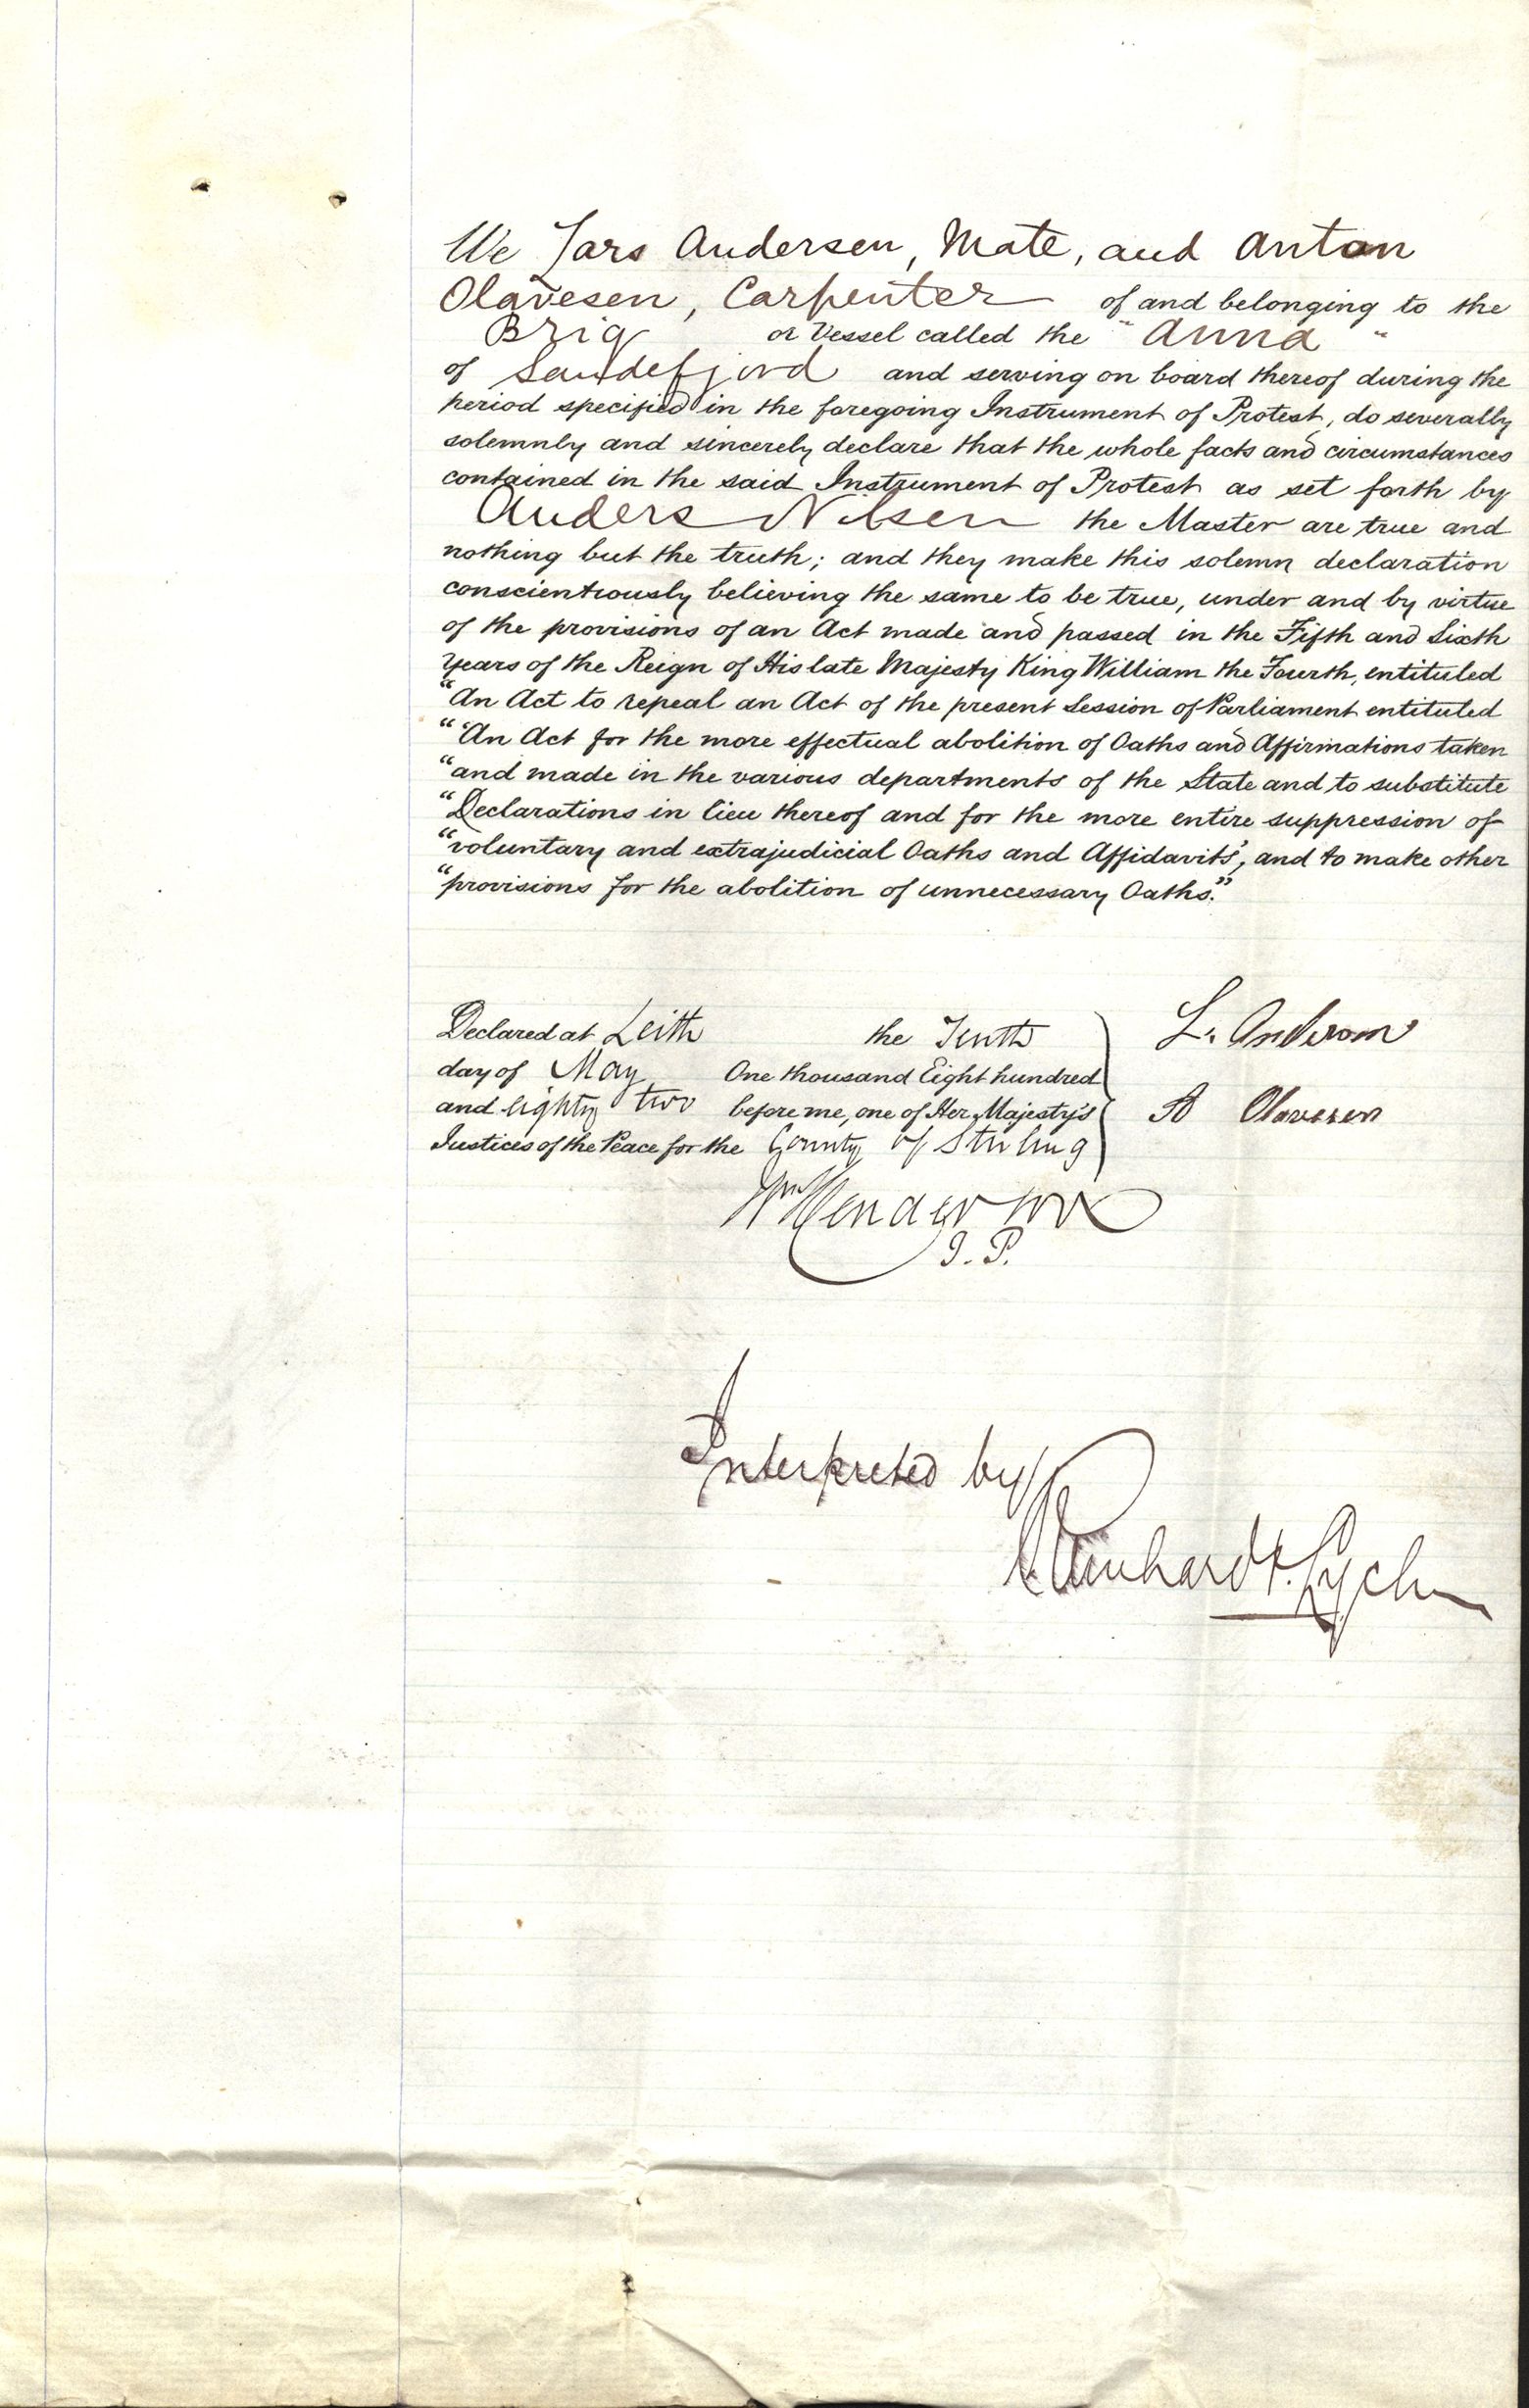 We Lars Andersen, Mate, and Anton
Olavesen, Carpenter of and belonging to the
Brig or Vessel called the "Anna"
of Sandefjord and serving on board thereof during the
period specified in the foregoing Instrument of Protest, do severally
solemnly and sincerely declare that the whole facts and circumstances
contained in the said Instrument of Protest as set forth by
Anders Nilsen the Master are true and
nothing but the truth; and they make this solemn declaration
conscientiously believing the same to be true, under and by virtue
of the provisions of an Act made and passed in the Fifth and Sixth
years of the Reign of His late Majesty King William the Fourth, entituled
"An Act to repeal an Act of the present Session of Parliament entituled
"'An Act for the more effectual abolition of Oaths and Affirmations taken
"and made in the various departments of the State and to substitute
"Declarations in lieu thereof and for the more entire suppression of
"voluntary and extrajudicial Oaths and Affidavits', and to make other
"provisions for the abolition of unnecessary Oaths."
Declared at Leith the Tenth
day of May One thousand Eight hundred
and eighty two before me, one of Her Majesty's
Justices of the Peace for the County of Stirling
L. Anderson
A Olavesen
Wm Henderson
J.P.
Interpreted by